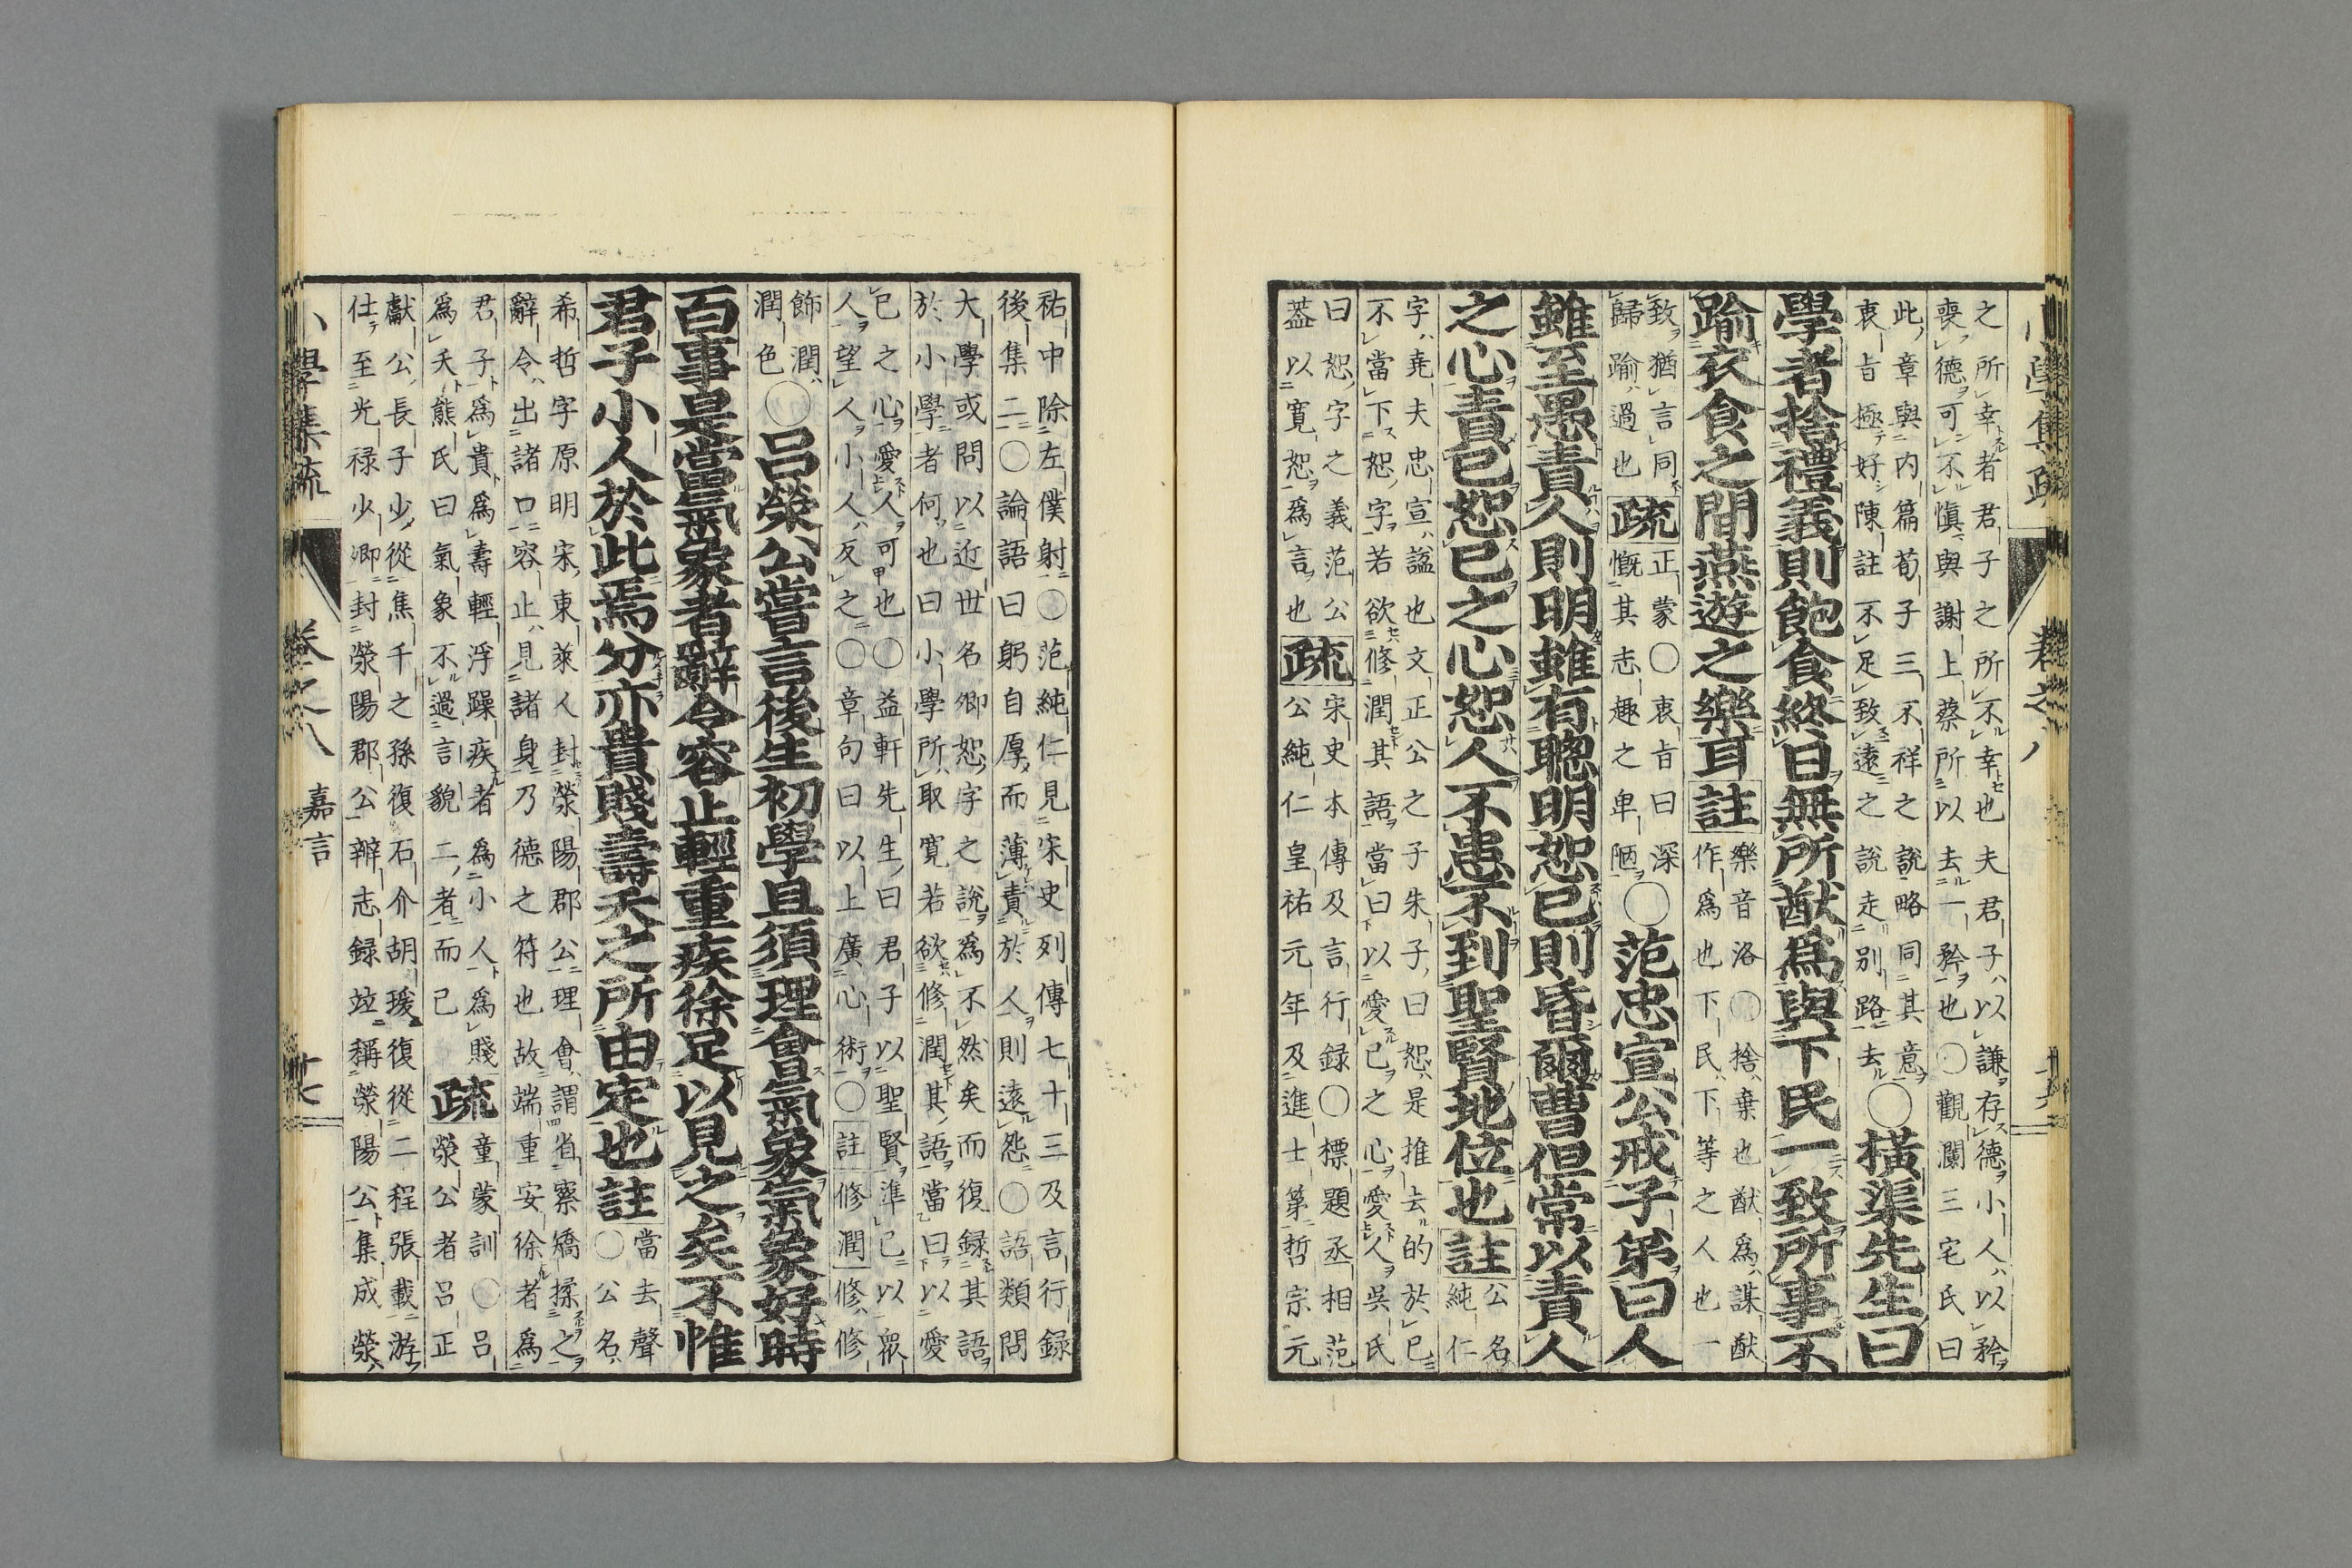 之所幸者君子之所不幸也夫君子以謙存德小人以矜
喪德可不慎與謝上蔡所以去一矜也○觀瀾三宅氏曰
此章與內篇荀子三不祥之說略同其意
衷旨極好陳註不足致遠之說走別路去
○橫渠先生曰
學者捨禮義則飽食終日無所猷爲與下民一致所事不
踰衣食之間燕遊之樂耳註
樂音洛○捨棄也猷爲謀猷
作爲也下民下等之人也一
致猶言同
歸踰過也
疏
正蒙○衷旨曰深
慨其志趣之卑陋
○范忠宣公戒子弟曰人
雖至愚責人則明雖有聰明恕己則昏爾曹但常以責人
之心責己恕己之心恕人不患不到聖賢地位也註
公名
純仁
字堯夫忠宣諡也文正公之子朱子曰恕是推去的於己
不當下恕字若欲修潤其語當曰以愛己之心愛人吳氏
曰恕字之義范公
蓋以寬恕爲言也
疏
宋史本傳及言行録○標題丞相范
公純仁皇祐元年及進士第哲宗元
祐中除左僕射○范純仁見宋史列傳七十三及言行録
後集二○論語曰躬自厚而薄責於人則遠怨○語類問
大學或問以近世名卿恕字之說爲不然矣而復録其語
於小學者何也曰小學所取寬若欲修潤其語當曰以愛
己之心愛人可也○益軒先生曰君子以聖賢準己以衆
人望人小人反之○章句曰以上廣心術○註修潤修修
飾潤
潤色
○呂滎公嘗言後生初學且須理會氣象氣象好時
百事是當氣象者辭令容止輕重疾徐足以見之矣不惟
君子小人於此焉分亦貴賤壽夭之所由定也註
當去聲
○公名
希哲字原明宋東萊人封滎陽郡公理會謂省察矯揉之
辭令出諸口容止見諸身乃德之符也故端重安徐者爲
君子爲貴爲壽輕浮躁疾者爲小人爲賤
爲夭熊氏曰氣象不過言貌二者而已
疏
童蒙訓○呂
滎公者呂正
獻公長子少從焦千之孫復石介胡瑗復從二程張載游
仕至光祿少卿封滎陽郡公辨志録竝稱滎陽公集成滎
小學集疏 卷之八 嘉言 十七